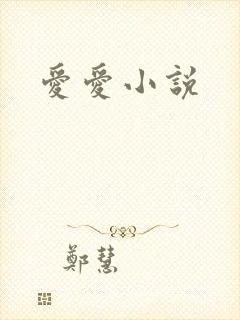 愛愛小説
鄭慧